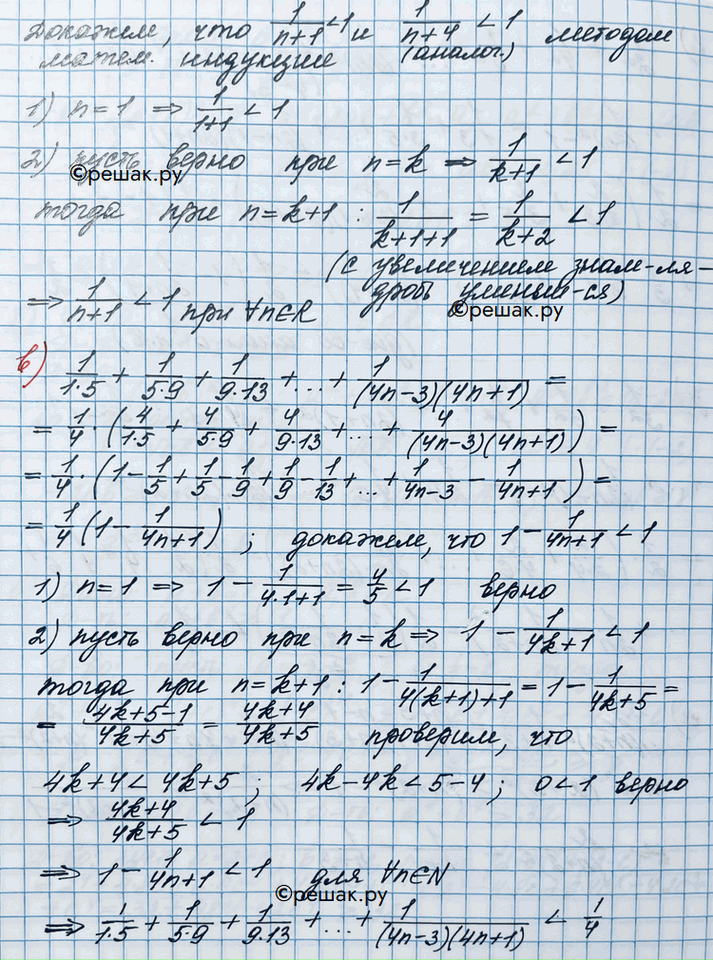 Докажем, что 1/(n+1) < 1 и 1/(n+4) < 1 методом
матем. индукции (аналог.)
1) n=1 ⇒ 1/(1+1) < 1
2) пусть верно при n=k ⇒ 1/(k+1) < 1
©решак.ру
тогда при n=k+1 : 1/(k+1+1) = 1/(k+2) < 1
(с увеличением знам-ля-
дробь уменьш-ся)
⇒ 1/(n+1) < 1 при ∀n∈R
©решак.ру
в) 1/(1·5) + 1/(5·9) + 1/(9·13) + ... + 1/((4n-3)(4n+1)) =
= 1/4 · (4/(1·5) + 4/(5·9) + 4/(9·13) + ... + 4/((4n-3)(4n+1))) =
= 1/4 · (1 - 1/5 + 1/5 - 1/9 + 1/9 - 1/13 + ... + 1/(4n-3) - 1/(4n+1)) =
= 1/4 (1 - 1/(4n+1)) ; докажем, что 1 - 1/(4n+1) < 1
1) n=1 ⇒ 1 - 1/(4·1+1) = 4/5 < 1 верно
2) пусть верно при n=k ⇒ 1 - 1/(4k+1) < 1
тогда при n=k+1 : 1 - 1/(4(k+1)+1) = 1 - 1/(4k+5) =
= (4k+5-1)/(4k+5) = (4k+4)/(4k+5) проверим, что
4k+4 < 4k+5 ; 4k-4k < 5-4 ; 0<1 верно
⇒ (4k+4)/(4k+5) < 1
⇒ 1 - 1/(4n+1) < 1 для ∀n∈N
©решак.ру
⇒ 1/(1·5) + 1/(5·9) + 1/(9·13) + ... + 1/((4n-3)(4n+1)) < 1/4